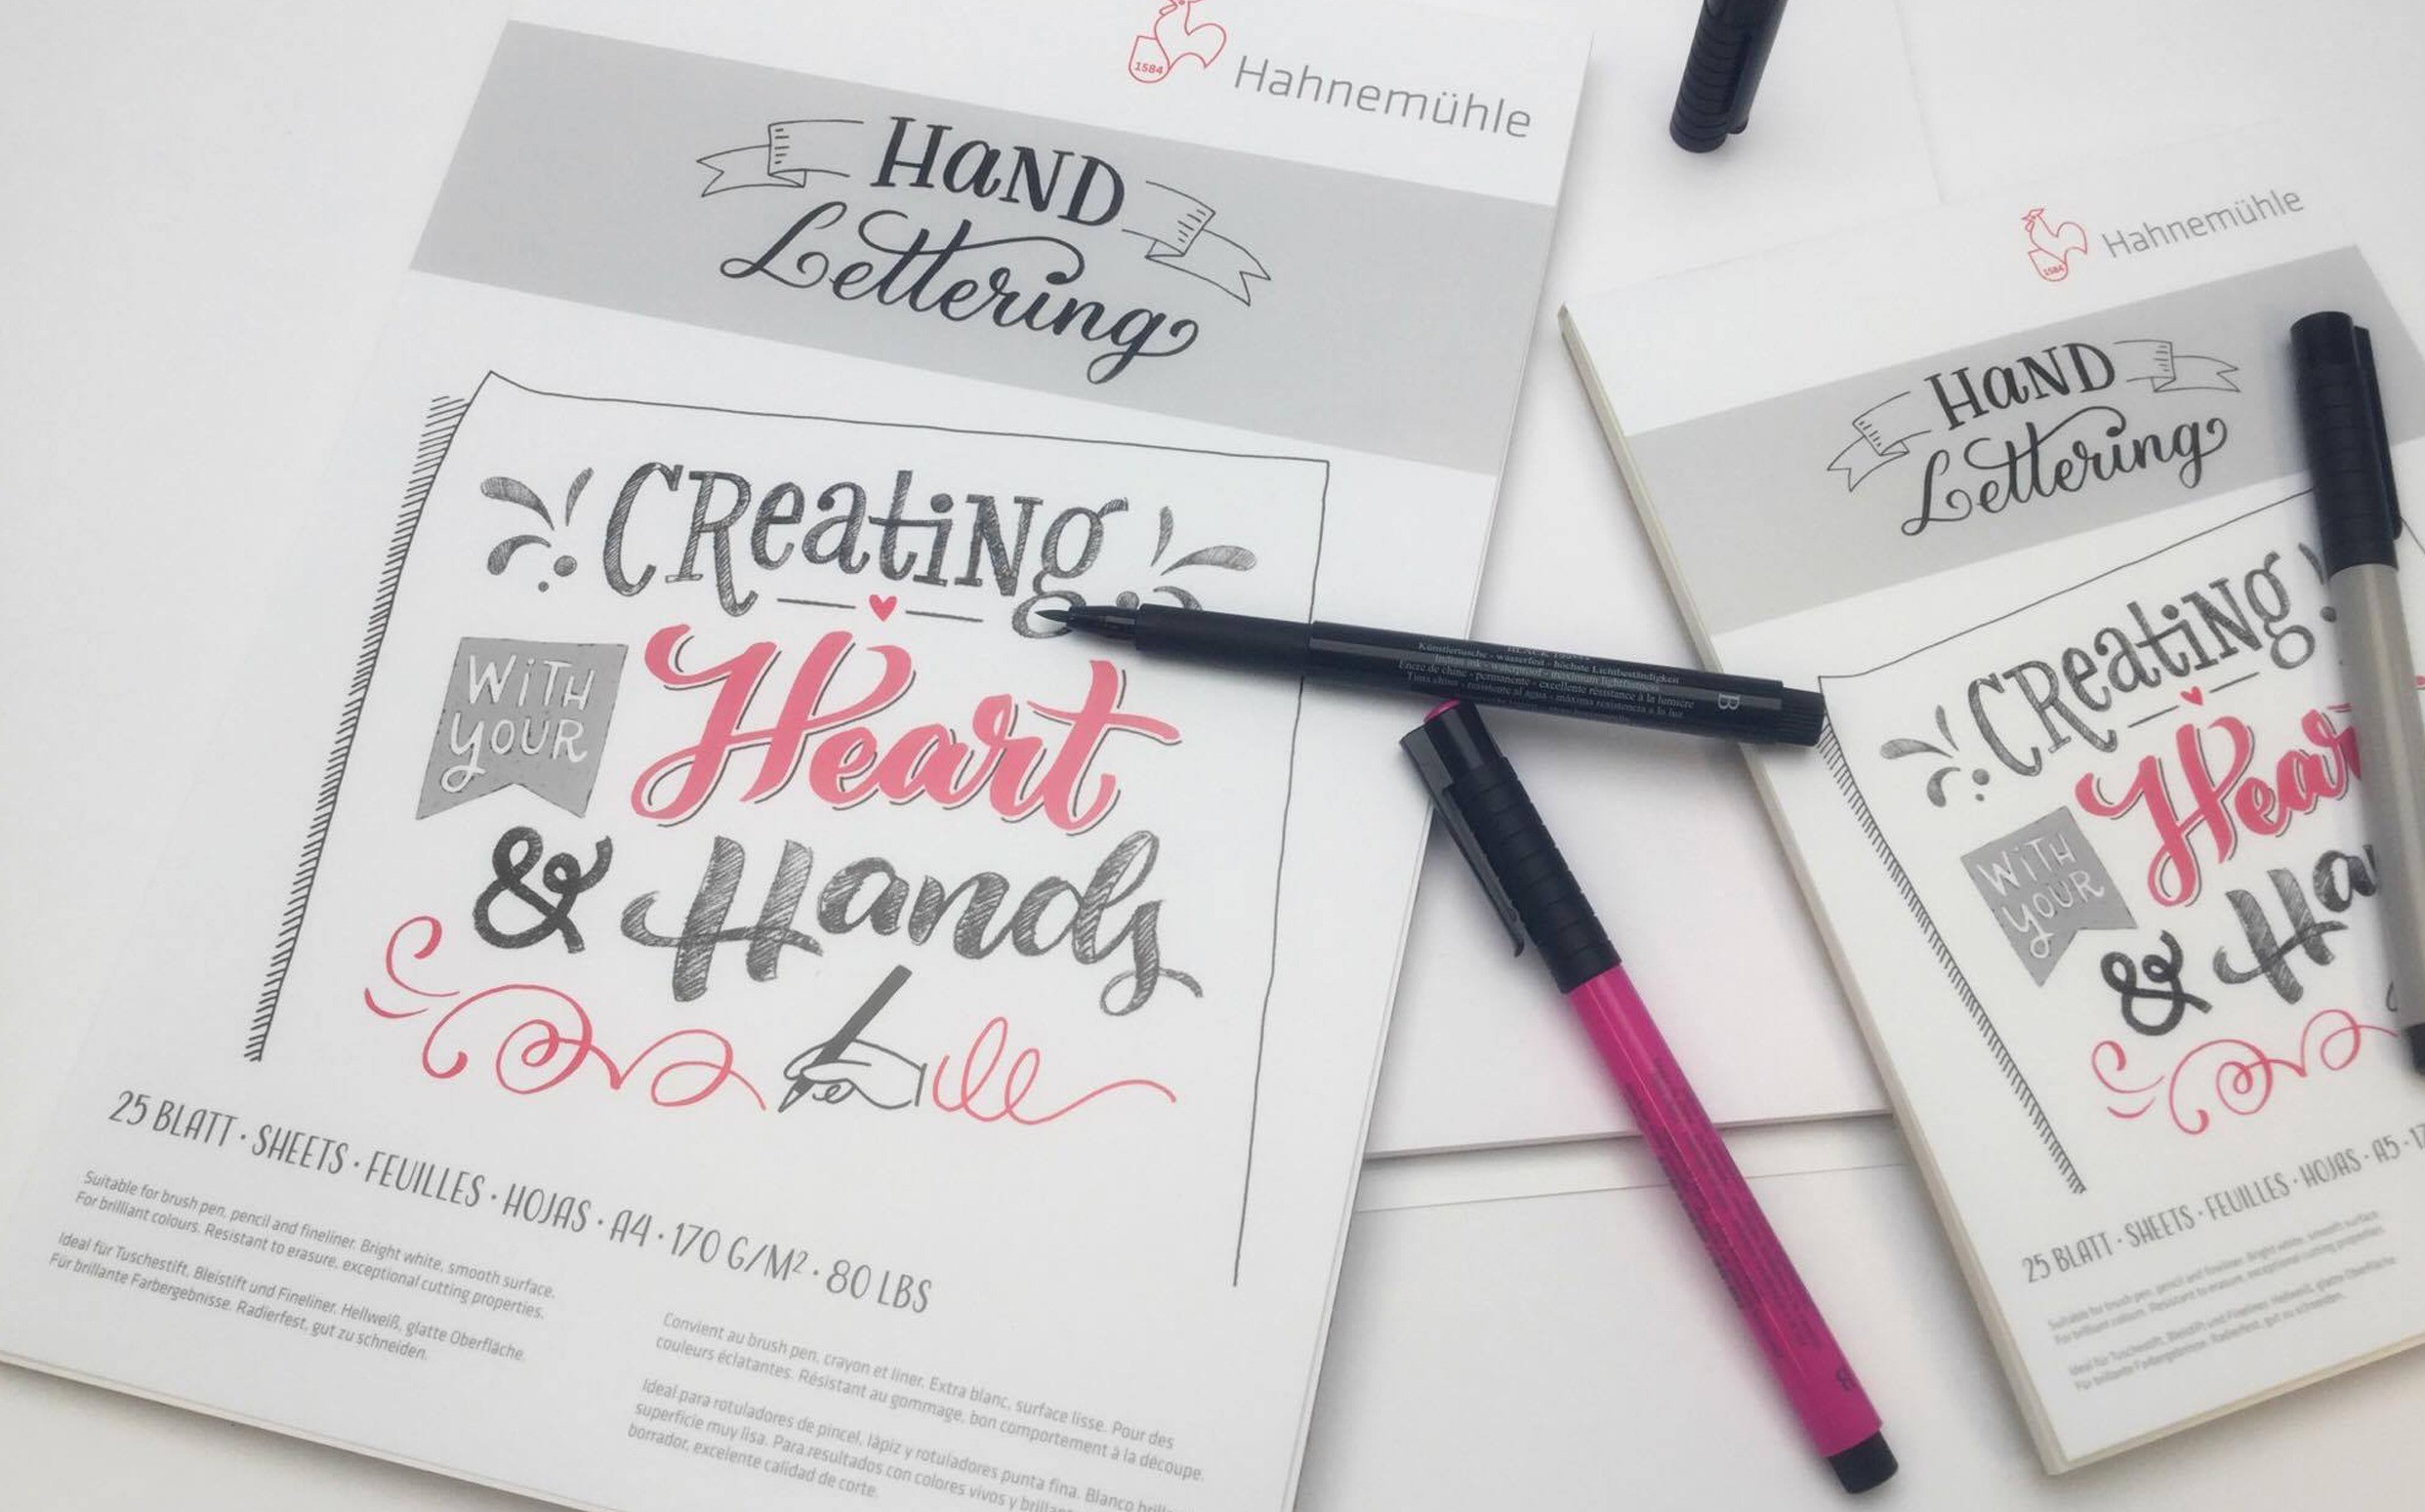 1584
Hahnemühle
HaND
Lettering
CReatiNg
WiTH
YOUR
Heart
& Hands
25 BLATT · SHEETS · FEUILLES · HOJAS · A4 · 170 G/M² · 80 LBS
Suitable for brush pen, pencil and fineliner. Bright white, smooth surface.
For brilliant colours. Resistant to erasure, exceptional cutting properties.
Ideal für Tuschestift, Bleistift und Fineliner. Hellweiß, glatte Oberfläche.
Für brillante Farbergebnisse. Radierfest, gut zu schneiden.
Convient au brush pen, crayon et liner. Extra blanc, surface lisse. Pour des
couleurs éclatantes. Résistant au gommage, bon comportement à la découpe.
Ideal para rotuladores de pincel, lápiz y rotuladores punta fina. Blanco
superficie muy lisa. Para resultados con colores vivos y
borrador, excelente calidad de corte.
Künstlertusche - wasserfest - höchste Lichtbeständigkeit
Indian ink - waterproof - maximum lightfastness
Encre de chine - permanente - excellente résistance à la lumière
Tinta china - resistente al agua - máxima resistencia a la luz
B
1584
Hahnemühle
HaND
Lettering
CReatiNg
WiTH
YOUR
Hear
& Ha
25 BLATT · SHEETS · FEUILLES · HOJAS · A5 · 17
Suitable for brush pen, pencil and fineliner. Bright white, smooth surface.
For brilliant colours. Resistant to erasure, exceptional cutting properties.
Ideal für Tuschestift, Bleistift und Fineliner. Hellweiß, glatte Oberfläche.
Für brillante Farbergebnisse. Radierfest, gut zu schneiden.